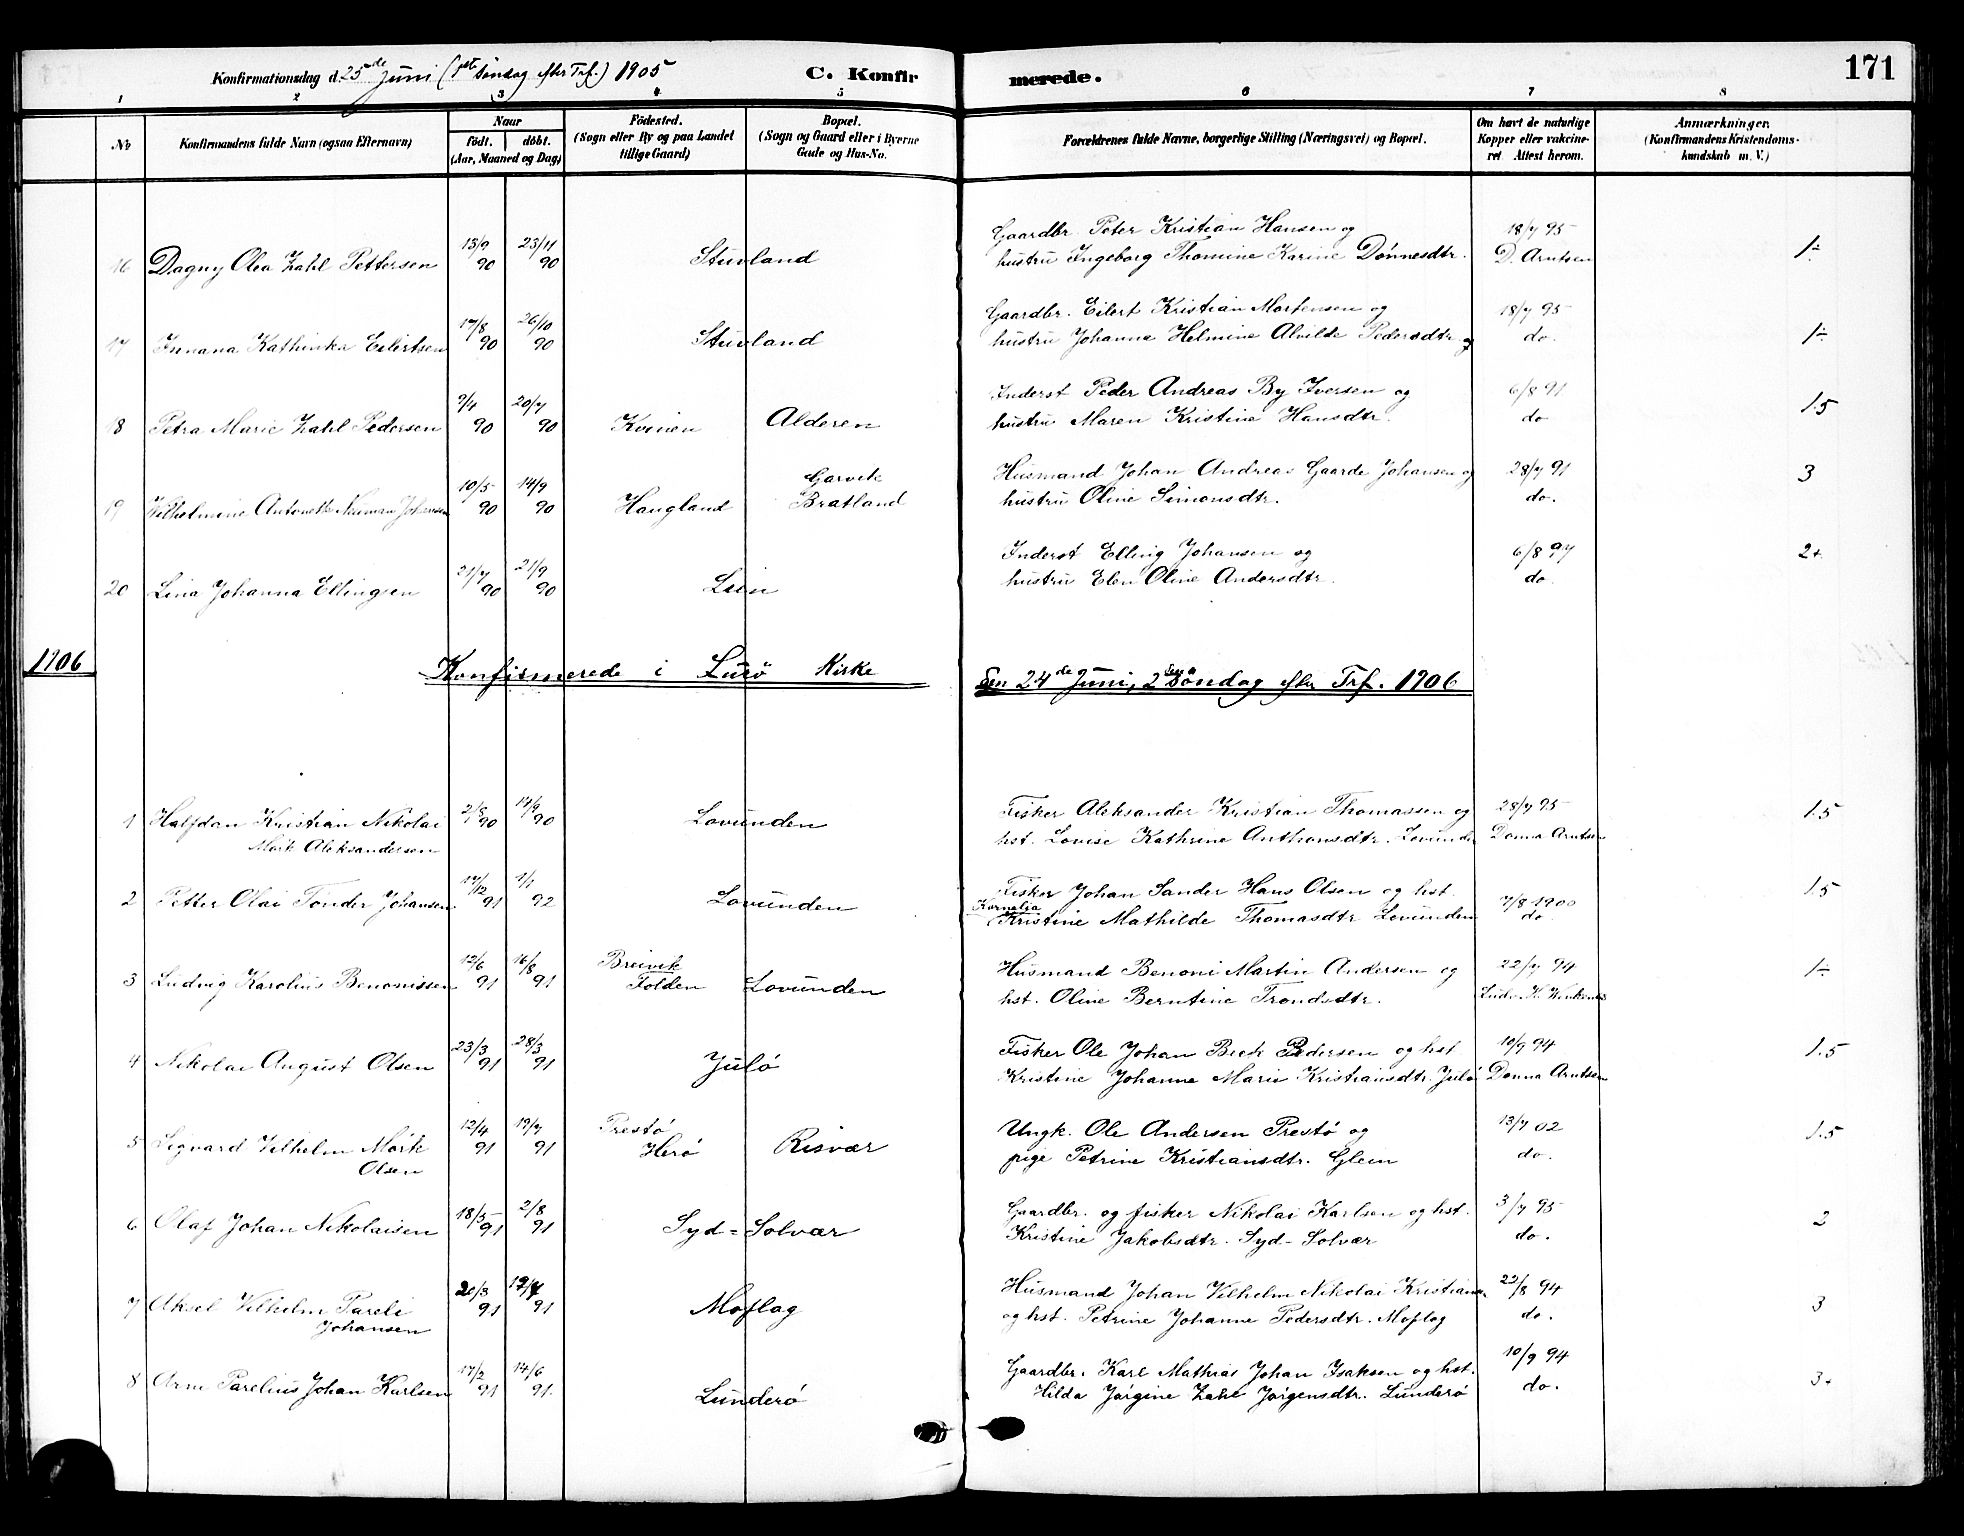 Konfirmationsdag d. 25de Juni (1ste søndag efter Trf.) 1905 C. Konfirmerede. 171
1 2 3 4 5 6 7 8
No
Konfirmandens fulde Navn (ogsaa Efternavn)
Naar
født. døbt.
(Aar, Maaned og Dag)
Fødested.
(Sogn eller By og paa Landet
tillige Gaard)
Bopæl.
(Sogn og Gaard eller i Byerne
Gade og Hus-No.
Forældrenes fulde Navne, borgerlige Stilling (Næringsvei) og Bopæl.
Om havt de naturlige
Kopper eller vakcine-
ret Attest herom.
Anmærkninger.
(Konfirmandens Kristendoms-
kundskab m. V.)
16 Dagny Olea Zahl Pettersen 13/9 90 23/11 90 Stuvland
Gaardbr. Peter Kristian Hansen og
hustru Ingeborg Thomine Karine Dønnesdtr.
18/7 95
D. Arntsen
1÷
17 Innana Kathinka Eilertsen 17/8 90 26/10 90 Stuvland
Gaardbr. Eilert Kristian Mortensen og
hustru Johanna Helmine Alvilde Pedersdtr.
18/7 95
do.
1÷
18 Petra Marie Zahl Pedersen 9/4 90 20/7 90 Kveinen Alderen
Inderst Peder Andreas By Iversen og
hustru Maren Kristine Hansdtr.
6/8 91
do
1.5
19 Vilhelmine Antonette Neuman Johansen 10/5 90 14/9 90 Haugland
Garvik
Bratland
Husmand Johan Andreas Gaarde Johansen og
hustru Oline Simonsdtr.
28/7 91
do.
3
20 Lina Johanna Ellingsen 21/7 90 21/9 90 Lein
Inderst Elling Johansen og
hustru Elen Oline Andersdtr.
6/8 97
do.
2+
1906
Konfirmerede i Lurø Kirke den 24de Juni, 2den Søndag efter Trf. 1906
1 Halfdan Kristian Nikolai
Mørk Aleksandersen
2/8 90 14/9 90 Lovunden
Fisker Aleksander Kristian Thomassen og
hst. Lovise Kathrine Anthonsdtr. Lovunden
28/7 95
Donna Arntsen
1.5
2 Petter Olai Tønder Johansen 17/12 91 1/1 92 Lovunden
Fisker Johan Sander Hans Olsen og hst.
Kornelia
Kristine Mathilde Thomasdtr Lovunden
7/8 1900
do.
1.5
3 Ludvig Karolius Benonissen 12/6 91 16/8 91
Breivik
Folden Lovunden
Husmand Benoni Martin Andersen og
hst. Oline Berntine Trondsdtr.
22/7 94
1÷
4 Nikolai August Olsen 23/3 91 28/3 91 Julø
Fisker Ole Johan Beck Pedersen og hst.
Kristine Johanne Marie Kristiansdtr. Julø
10/9 94
Donna Arntsen
1.5
5 Sigvard Vilhelm Mørk
Olsen
12/4 91 19/7 91
Prestø
Herø Risvær
Ungk. Ole Andersen Prestø og
pige Petrine Kristiansdtr. Glein
13/7 02
do.
1.5
6 Olaf Johan Nikolaisen 18/5 91 2/8 91 Syd=Solvær
Gaardbr. og fisker Nikolai Karlsen og hst.
Kristine Jakobsdtr. Syd-Solvær
3/7 95
do.
2
7 Aksel Vilhelm Pareli
Johansen
20/3 91 19/7 91 Moflag
Husmand Johan Vilhelm Nikolai Kristiansen
og hst. Petrine Johanne Pedersdtr. Moflag
22/8 94
do.
3
8 Arne Parelius Johan Karlsen 17/2 91 14/6 91. Lunderø
Gaardbr. Karl Mathias Johan Isaksen og hst.
Hilda Jørgine Zahl Jørgensdtr. Lunderø
10/9 94
do.
3+